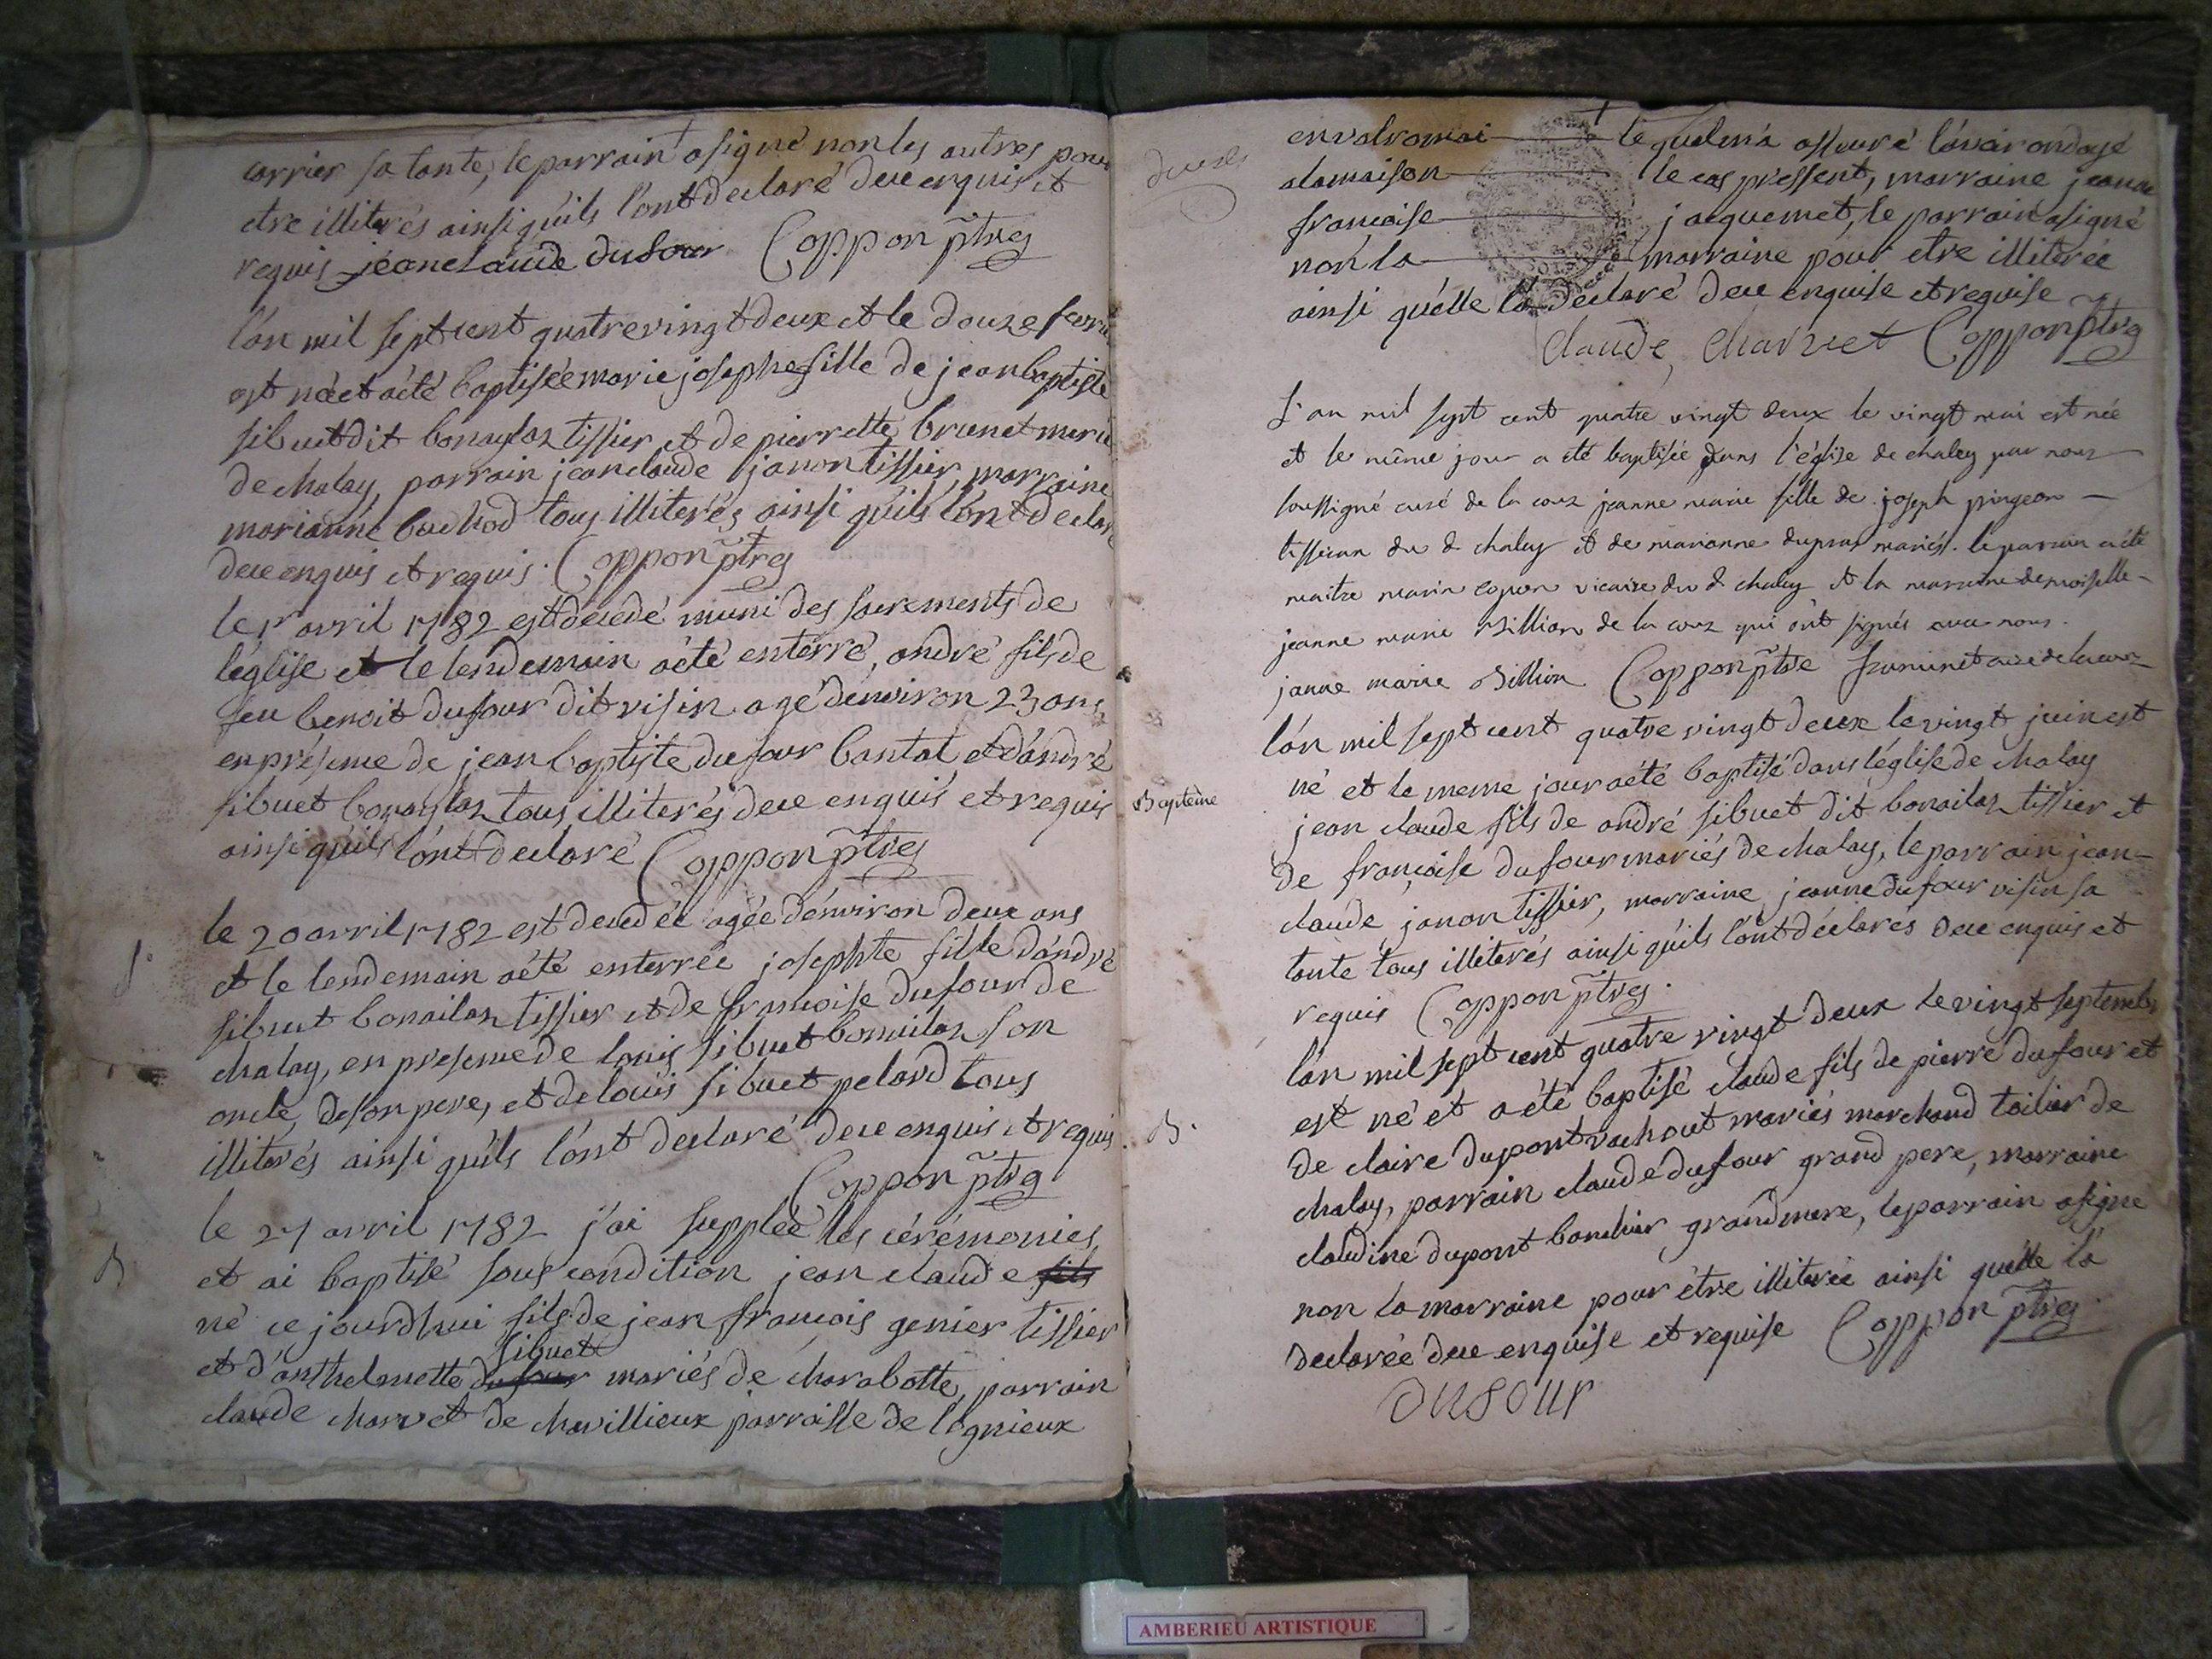 carrier sa tante, le parrain a signé non les autres pour
etre illiterés ainsi qu'ils l'ont declaré deue enquis et
requis jean claude dufour Coppon ptre
l'an mil sept cent quatre vingt deux et le douze fevri
est née et a été baptisée marie josephe fille de jean baptiste
sibuet dit bonaylaz tissier et de pierrette brunet marié
de chaley, parrain jean claude janon tissier, marraine
marianne bachod tous illiterés ainsi qu'ils l'ont declar
deue enquis et requis. Coppon ptre
le 1r avril 1782 est décedé muni des sacrements de
l'église et le lendemain a été enterré, andré fils de
feu benoit dufour dit visin agé d'environ 23 ans
en présence de jean baptiste dufour bantal et d'andré
sibuet bonaylaz tous illiterés deue enquis et requis
ainsi qu'ils l'ont declaré Coppon ptre
S.
le 20 avril 1782 est decedée agée d'environ deux ans
et le lendemain a été enterrée josephte fille d'andré
sibuet bonailaz tissier et de françoise dufour de
chaley, en presence de louis sibuet bonailaz son
oncle, de son pere, et de louis sibuet pelard tous
illiterés ainsi qu'ils l'ont declaré deue enquis et requis
Coppon ptre
B
le 27 avril 1782 j'ai suppléé les cérémonies
et ai baptisé sous condition jean claude fils
né ce jourd'hui fils de jean françois genier tissier
sibuet
et d'anthelmette dufour mariés de charabotte, parrain
claude charvet de chavillieux parroisse de lognieux
en valromai le quel m'a asseuré l'avoir ondoyé
a la maison le cas pressent, marraine jeanne
françoise jacquemet, le parrain a signé
non la marraine pour etre illiterée
ainsi qu'elle l'a declaré deue enquise et requise
claude, charvet Coppon ptre
L'an mil sept cent quatre vingt deux le vingt mai est née
et le même jour a été baptisée dans l'église de chaley par nous
soussigné curé de la couz jeanne marie fille de joseph pingeon
tisseran du d chaley et de marianne dupras mariés. le parrain a été
maitre marin copon vicaire du d chaley et la marraine demoiselle
jeanne marie Billion de la couz qui ont signés avec nous.
janne marie Billion Coppon ptre
Bapteme
l'an mil sept cent quatre vingt deux le vingt juin est
né et le meme jour a été baptisé dans l'église de chaley
jean claude fils de andré sibuet dit bonailaz tissier et
de françoise dufour mariés de chaley, le parrain jean
claude janon tissier, marraine jeanne dufour visin sa
tante tous illiterés ainsi qu'ils l'ont déclarés deue enquis et
requis Coppon ptre.
B.
l'an mil sept cent quatre vingt deux le vingt septembr
est né et a été baptisé claude fils de pierre dufour et
de claire dupont vachout mariés marchand toilier de
chaley, parrain claude dufour grand pere, marraine
claudine dupont bandier grandmere, le parrain a signé
non la marraine pour être illiterée ainsi qu'elle l'a
declarée deue enquise et requise Coppon ptre.
dufour
AMBERIEU ARTISTIQUE